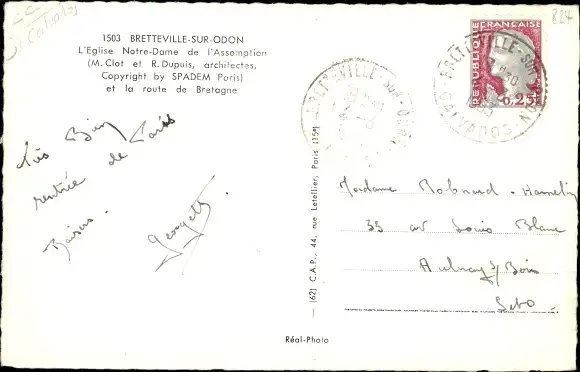 Calvados
824
1503 BRETTEVILLE-SUR-ODON
L'Eglise Notre-Dame de l'Assomption
(M. Clot et R. Dupuis, architectes,
Copyright by SPADEM Paris)
et la route de Bretagne
Très Bien
rentrée de Paris
Baisers.
Georgette
(62) C.A.P., 44, rue Letellier, Paris (15e)
REPUBLIQUE FRANÇAISE
0,25
BRETTEVILLE-SUR-ODON
CALVADOS
BRETTEVILLE-SUR-ODON
Madame Robnard - Hamelin
35 av Louis Blanc
Aulnay s/Bois
Réal-Photo